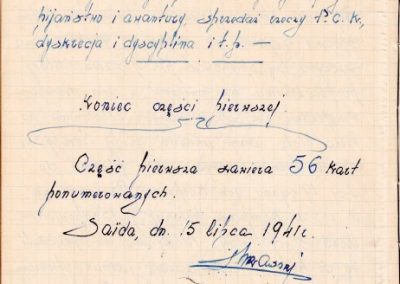 pijaństwo i awantury, sprzedaż rzeczy P.C.K.,
dyskrecja i dyscyplina i t.p. —
Koniec części pierwszej.
Część pierwsza zawiera 56 kart
ponumerowanych.
Saida, dn. 15 lipca 1941 r.